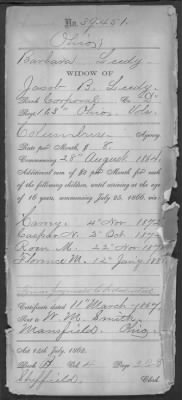 No. 39451.
(Ohio)
Barbara Leedy
WIDOW OF
Jacob B. Leedy
Rank Corporal Co. "D"
Reg. 163d Ohio Vols.
Columbus Agency
Rate per Month $ 8.
Commencing 28th August 1864.
Additional sum of $2 per Month for each
of the following children, until arriving at the age
of 16 years, commencing July 25, 1866, viz:
4" Nov 187
2" Oct. 187
Rosa M. 22" Nov 187
Florence M. 12" Jany 188
Certificate dated 11" March 1867.
Sent to W. M. Smith
Mansfield, Ohio.
Act 14th July, 1862.
Book Vol. 4 Page
Sheffield Clerk.